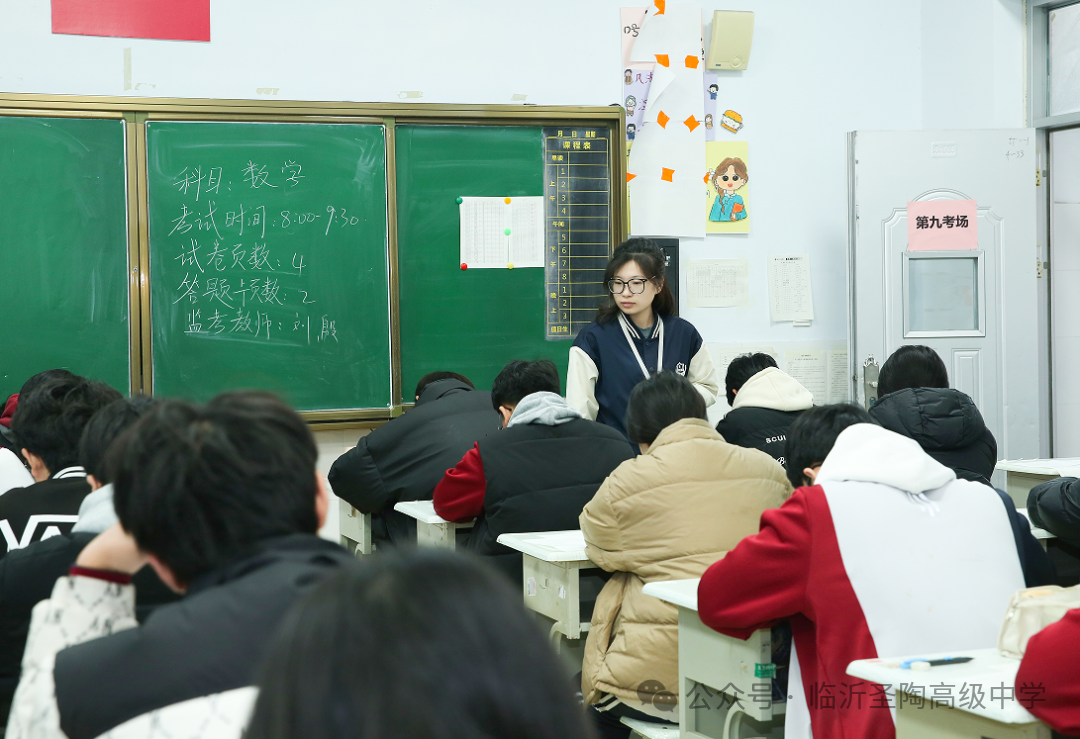 科目：数学
考试时间：8:00-9:30
试卷页数：4
答题卡页数：2
监考教师：刘 殷
月 日 星期
课程表
早读
1
上 2
3
午 4
午间
5
下 6
7
午 8
1
晚 2
上 3
第九考场
BCUI
公众号 · 临沂圣陶高级中学